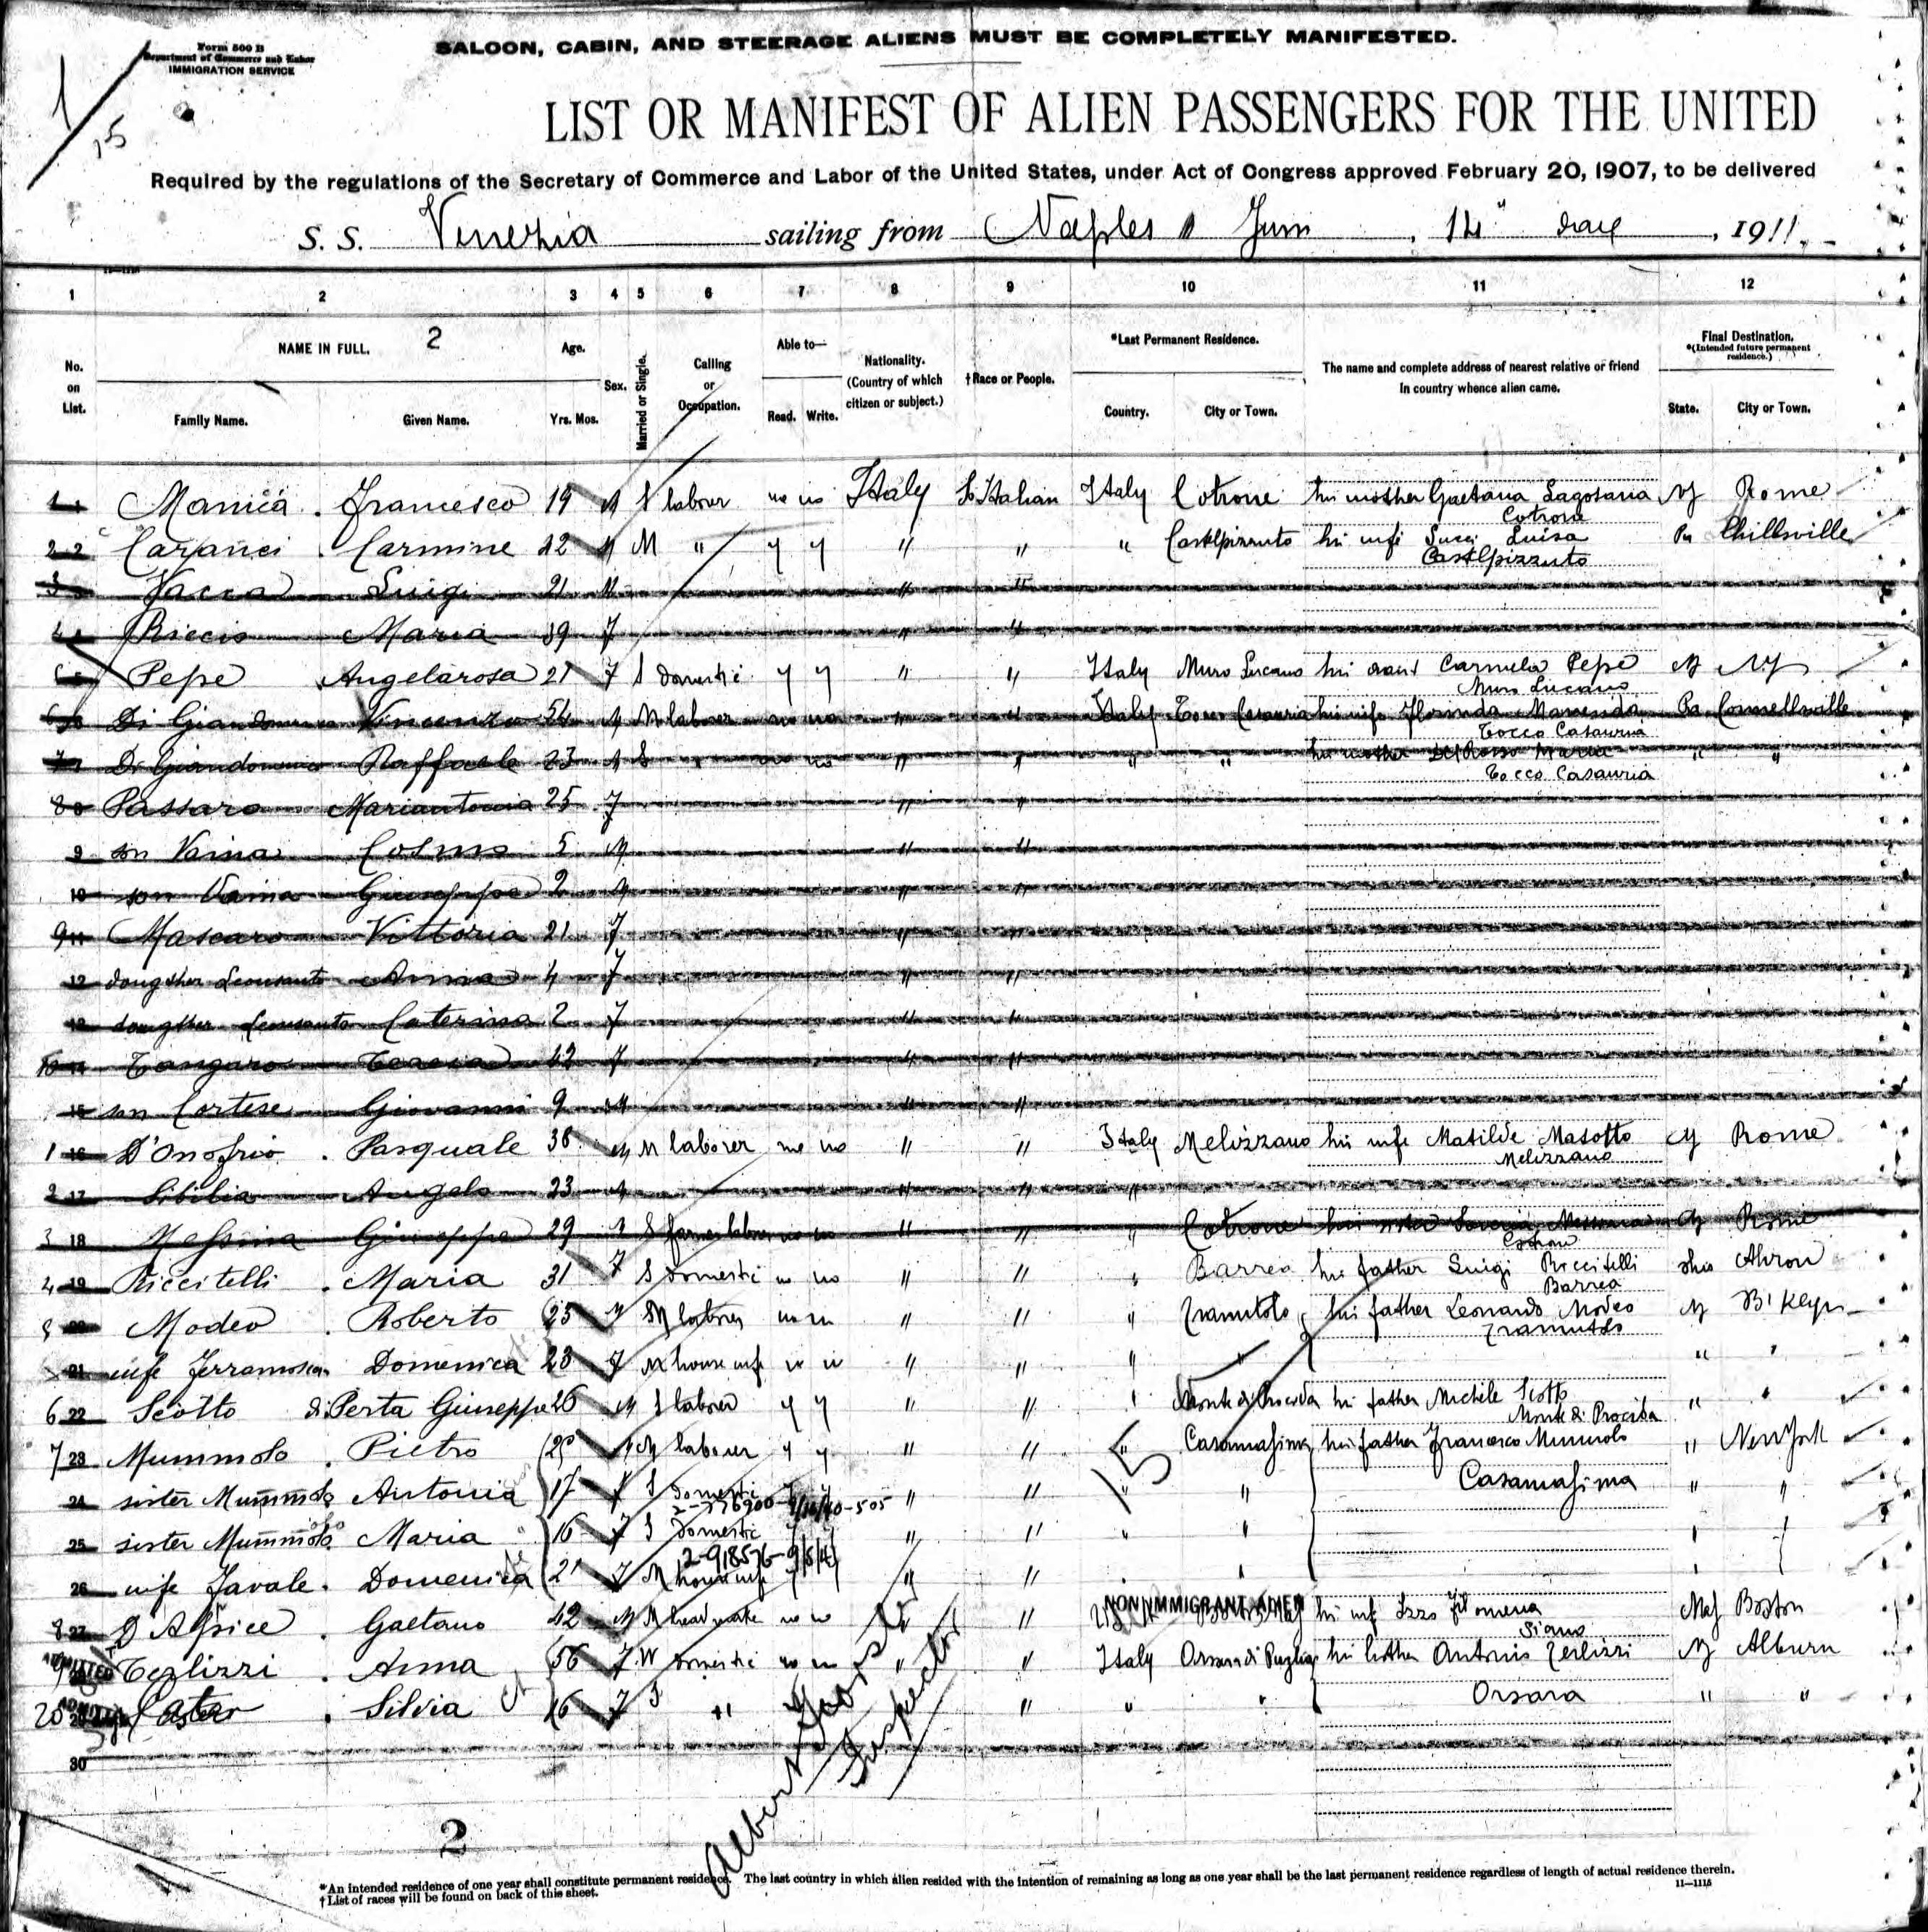 Form 500 B
Department of Commerce and Labor
IMMIGRATION SERVICE
SALOON, CABIN, AND STEERAGE ALIENS MUST BE COMPLETELY MANIFESTED.
LIST OR MANIFEST OF ALIEN PASSENGERS FOR THE UNITED
Required by the regulations of the Secretary of Commerce and Labor of the United States, under Act of Congress approved February 20, 1907, to be delivered
S. S. Venezia sailing from Naples 14 1911
1 2 3 4 5 6 7 8 9 10 11 12
No. on List.
NAME IN FULL. 2
Family Name. Given Name.
Age.
Yrs. Mos.
Sex.
Married or Single.
Calling or Occupation.
Able to—
Read. Write.
Nationality. (Country of which citizen or subject.)
†Race or People.
*Last Permanent Residence.
Country. City or Town.
The name and complete address of nearest relative or friend in country whence alien came.
Final Destination.
*(Intended future permanent residence.)
State. City or Town.
1 Manica Francesco 19 M S labour no no Italy So Italian Italy Cotrone his mother Gaetana NY Rome
Cotrone
2 Caranci Carmine 42 M M " y y " " " Castelpizzuto his wife Succi Luisa Pa
Castelpizzuto
3 Vacca Luigi 21 M " "
4 Riccio Maria 39 F " "
5 Pepe Angelarosa 21 F S domestic y y " " Italy Muro Lucano his aunt Carmela Pepe NY NY
Muro Lucano
6 Di Giandomenico Vincenzo 54 M M laborer no no " " Italy Tocco Casauria his wife Florinda Pa Connellsville
Tocco Casauria
7 Di Giandomenico Raffaele 23 M S " no no " " " " his mother Del Rosso Maria " "
Tocco Casauria
8 Passaro Mariantonia 25 F " "
9 son Vaina Cosmo 5 M " "
10 son Vaina Giuseppe 2 M " "
11 Mascaro Vittoria 21 F " "
12 daugther Anna 4 F " "
13 daugther Caterina 2 F " "
14 Tangaro 42 F " "
15 son Cortese Giovanni 9 M " "
16 D'Onofrio Pasquale 38 M M laborer no no " " Italy Melizzano his wife Matilde Masotto NY Rome
Melizzano
17 Sibilia Angelo 23 M " " "
18 Messina Giuseppe 29 M S farm labour no no " " " Cotrone his sister Messina NY Rome
Cotrone
19 Riccitelli Maria 31 F S domestic no no " " " Barrea his father Luigi Riccitelli Ohio Akron
Barrea
20 Modeo Roberto 25 M M laborer no no " " " Tramutola his father Leonardo Modeo NY B'klyn
Tramutola
21 wife Ferramosca Domenica 23 F M housewife no no " " " " " "
22 Scotto di Perta Giuseppe 26 M S laborer y y " " " Monte di Procida his father Michele Scotto " "
Monte di Procida
23 Mummolo Pietro 25 M M laborer y y " " " Casamassima his father Francesco Mummolo " New York
24 sister Mummolo Antonia 17 F S domestic " " " " Casamassima " "
25 sister Mummolo Maria 16 F S domestic " " " "
26 wife Favale Domenica 21 F M housewife " " " "
27 D'Apice Gaetano 42 M M no no " " NON IMMIGRANT ALIEN his wife Izzo Filomena Mas Boston
Siano
28 ADMITTED Terlizzi Anna 56 F W domestic no no " " Italy Orsara di Puglia his brother Antonio Terlizzi NY Auburn
29 ADMITTED Silvia 16 F S " " " " Orsara " "
30
15
2
Albert
Inspector
*An intended residence of one year shall constitute permanent residence. The last country in which alien resided with the intention of remaining as long as one year shall be the last permanent residence regardless of length of actual residence therein.
†List of races will be found on back of this sheet.
11—1115